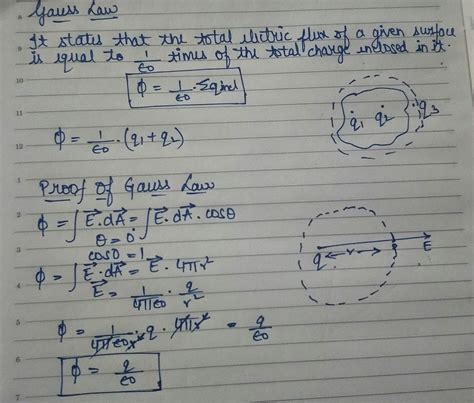 Gauss Law
It states that the total electric flux of a given surface
is equal to 1/ε0 times of the total charge enclosed in it.
ϕ = 1/ε0 · Σqincl
q1 q2 q3
ϕ = 1/ε0 · (q1+q2)
Proof Of Gauss Law
ϕ = ∫E⃗·dA⃗ = ∫E⃗·dA⃗·cosθ
θ = 0°
cosθ = 1
ϕ = ∫E⃗·dA⃗ = E⃗·4πr²
q r P E
E⃗ = 1/4πε0 · q/r²
ϕ = 1/4πε0r² · q · 4πr² = q/ε0
ϕ = q/ε0
8
9
10
11
12
1
2
3
4
5
6
7